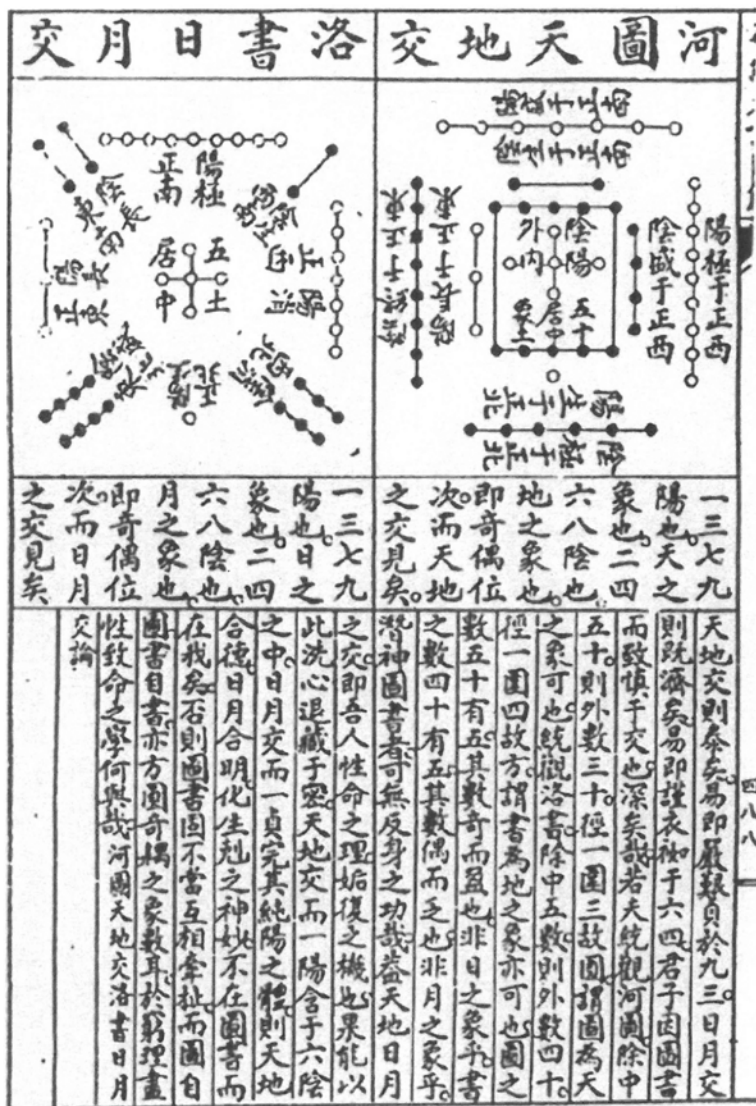 河圖天地交
陰盛于正南
陽長于正東
陰陽
外內
五十
居中
象土
陰盛于正西
陽極于正西
陽生于正北
陰極于正北
一三七九
陽也天之
象也二四
六八陰也
地之象也
即奇偶位
次而天地
之交見矣
洛書日月交
陽極
正南
陰長
東南
陽長
正東
五土
居中
陽消
正西
西北
正北
一三七九
陽也日之
象也二四
六八陰也
月之象也
即奇偶位
次而日月
之交見矣
天地交則泰矣易即嚴艱貞於九三日月交
則既濟矣易即謹衣袽于六四君子因圖書
而致慎于交也深矣哉若夫統觀河圖除中
五十則外數三十徑一圍三故圓謂圖為天
之象可也統觀洛書除中五數則外數四十
徑一圍四故方謂書為地之象亦可也圖之
數五十有五其數奇而盈也非日之象乎書
之數四十有五其數偶而乏也非月之象乎
潛神圖書者可無反身之功哉蓋天地日月
之交即吾人性命之理姤復之機也果能以
此洗心退藏于密天地交而一陽含于六陰
之中日月交而一貞完其純陽之體則天地
合德日月合明化生剋之神妙不在圖書而
在我矣否則圖書固不當互相牽扯而圖自
圖書自書亦方圓奇耦之象數耳於窮理盡
性致命之學何與哉河圖天地交洛書日月
交論
四八八